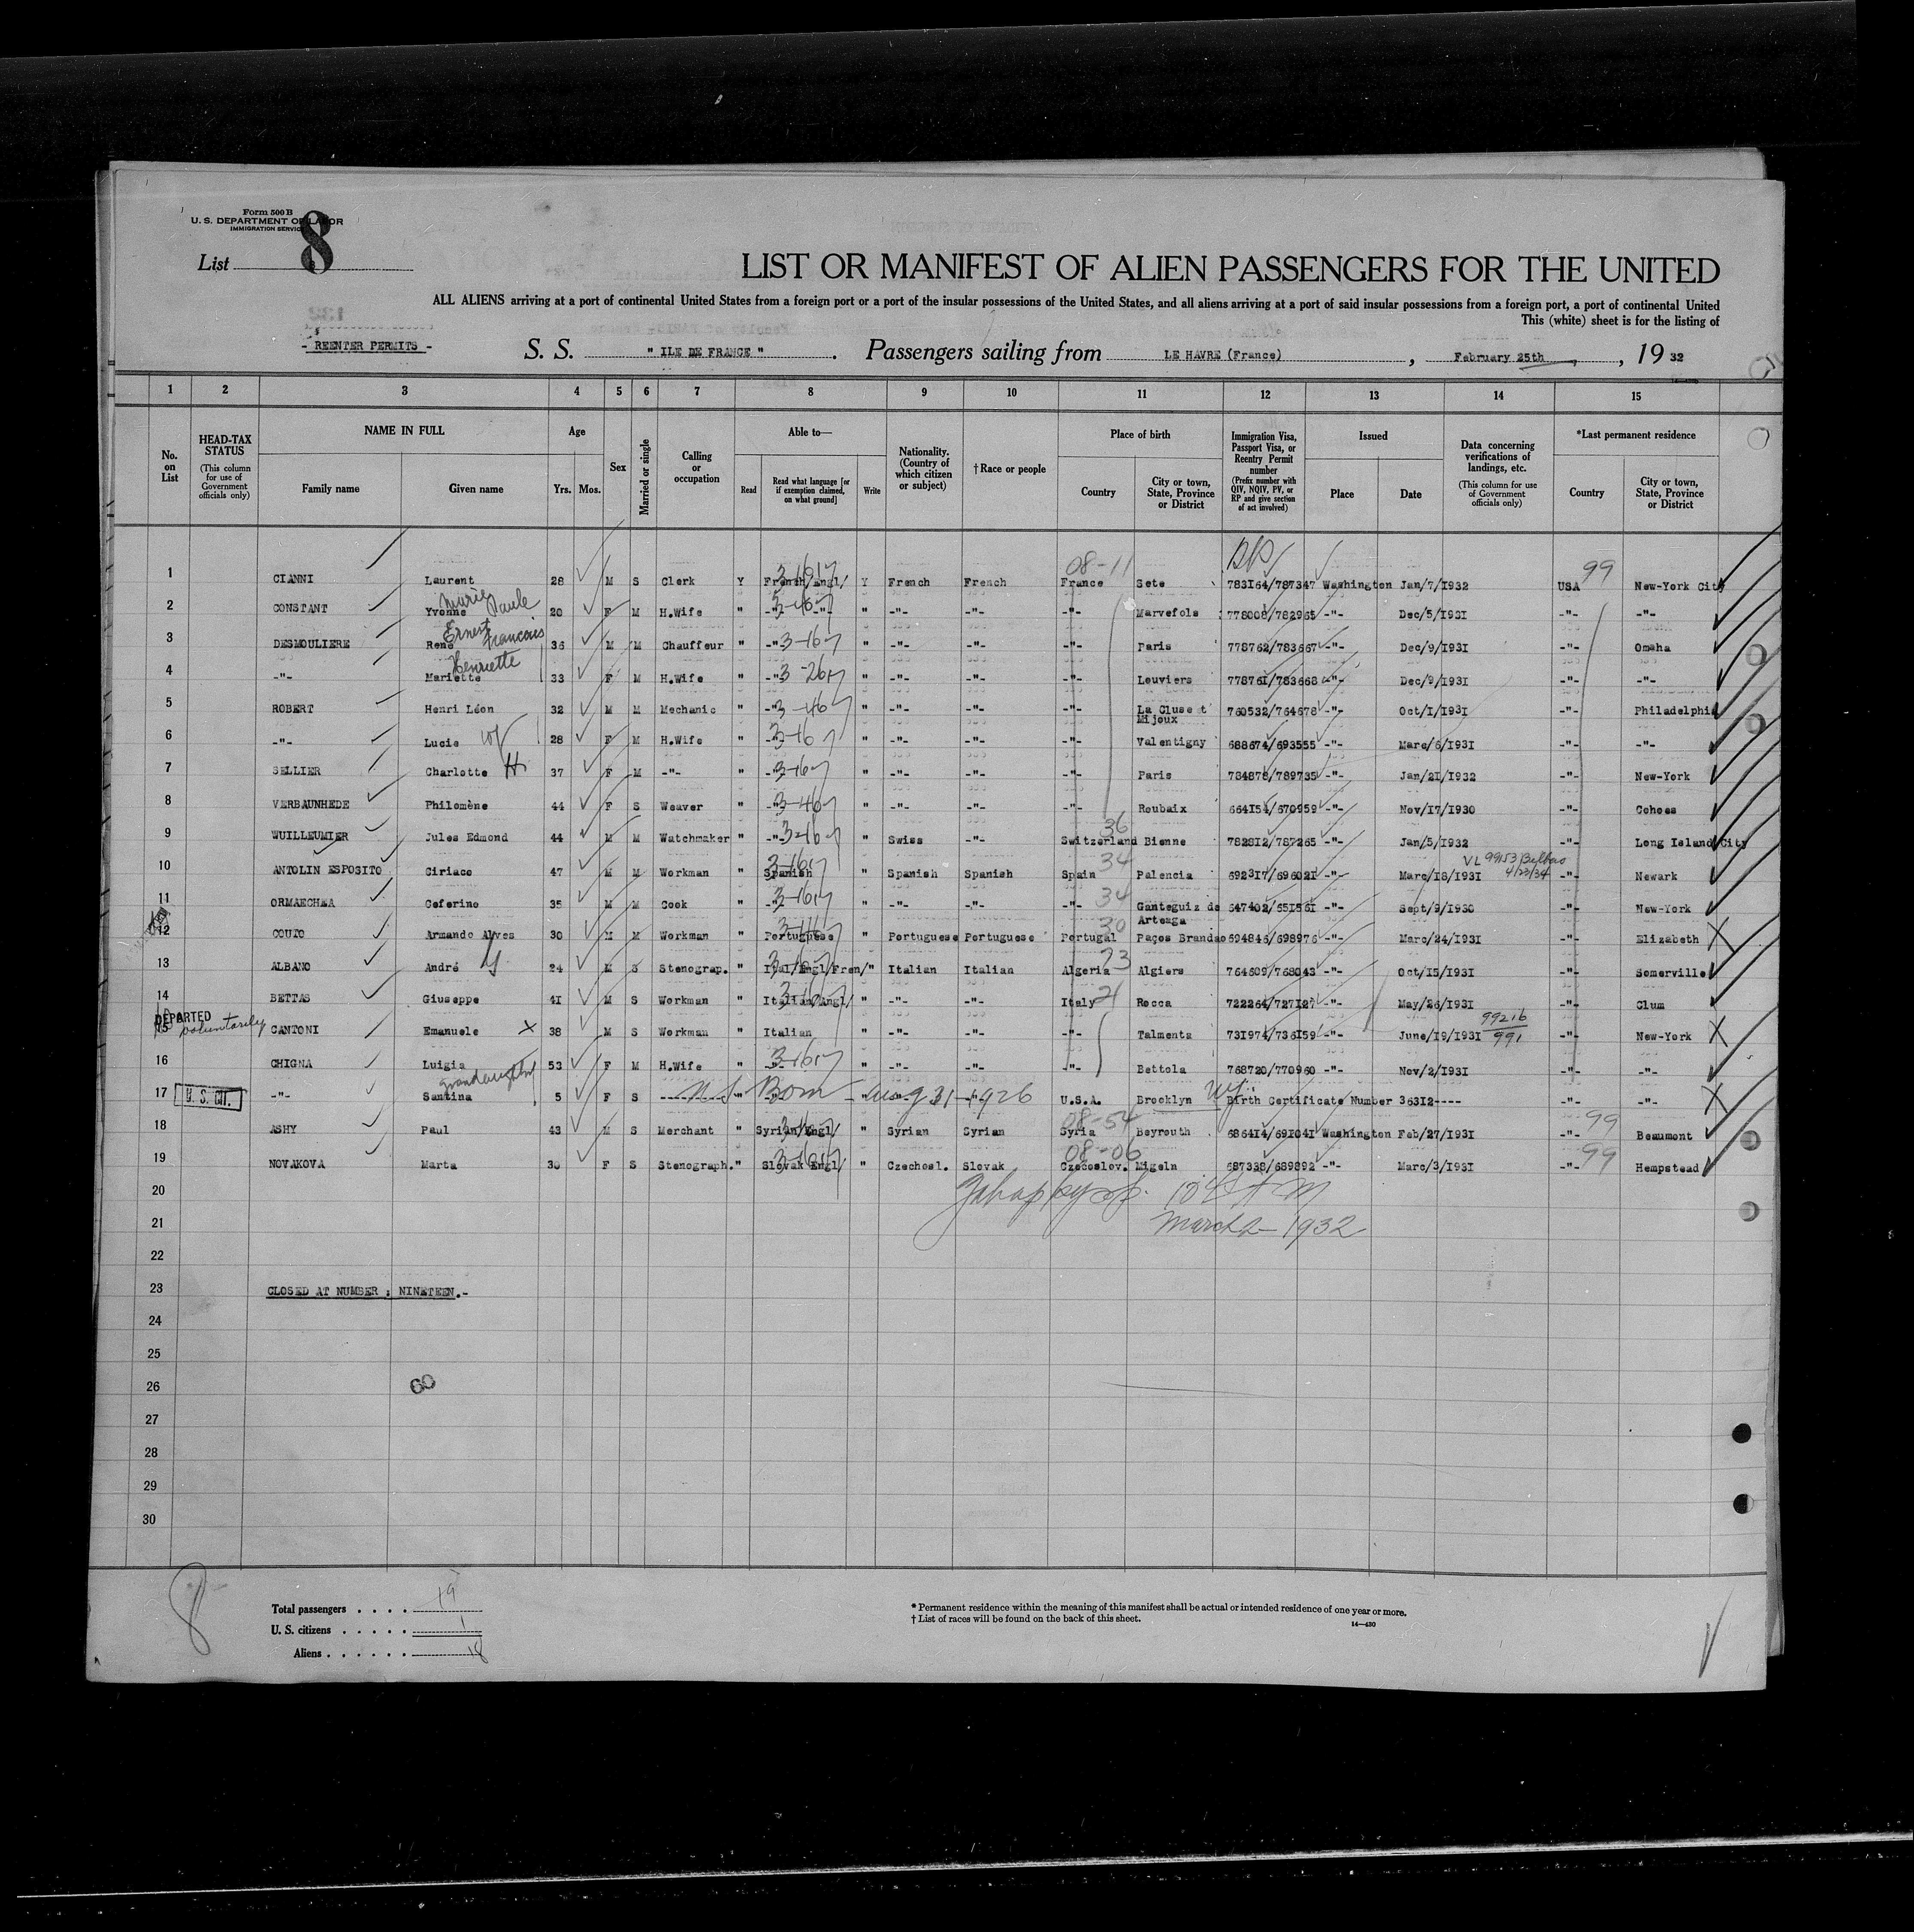 Form 500 B
U. S. DEPARTMENT OF LABOR
IMMIGRATION SERVICE
List 8
LIST OR MANIFEST OF ALIEN PASSENGERS FOR THE UNITED
ALL ALIENS arriving at a port of continental United States from a foreign port or a port of the insular possessions of the United States, and all aliens arriving at a port of said insular possessions from a foreign port, a port of continental United
This (white) sheet is for the listing of
- REENTER PERMITS - S. S. " ILE DE FRANCE " . Passengers sailing from LE HAVRE (France) , February 25th , 19 32
1 2 3 4 5 6 7 8 9 10 11 12 13 14 15
No. on List
HEAD-TAX STATUS (This column for use of Government officials only)
NAME IN FULL
Family name Given name
Age
Yrs. Mos.
Sex
Married or single
Calling or occupation
Able to—
Read Read what language [or if exemption claimed, on what ground] Write
Nationality. (Country of which citizen or subject)
† Race or people
Place of birth
Country City or town, State, Province or District
Immigration Visa, Passport Visa, or Reentry Permit number (Prefix number with QIV, NQIV, PV, or RP and give section of act involved)
Issued
Place Date
Data concerning verifications of landings, etc. (This column for use of Government officials only)
*Last permanent residence
Country City or town, State, Province or District
08-11 99
1 CIANNI Laurent 28 M S Clerk Y French/Engl/ Y French French France Sete 783164/787347 Washington Jan/7/1932 USA New-York City
Marie Paule
2 CONSTANT Yvonne 20 F M H.Wife " -"- -"- " -"- -"- -"- Marvefols 778008/782965 -"- Dec/5/1931 -"- -"-
Ernest Francois
3 DESMOULIERE René 36 M M Chauffeur " -"- " -"- -"- -"- Paris 778762/783667 -"- Dec/9/1931 -"- Omaha
Henriette
4 -"- Mariette 33 F M H.Wife " -"- " -"- -"- -"- Louviers 778761/783668 -"- Dec/9/1931 -"- -"-
5 ROBERT Henri Léon 32 M M Mechanic " -"- " -"- -"- -"- La Cluse t Mijoux 760532/764678 -"- Oct/1/1931 -"- Philadelphia
6 -"- Lucie 28 F M H.Wife " -"- " -"- -"- -"- Valentigny 688674/693555 -"- Marc/6/1931 -"- -"-
7 SELLIER Charlotte H. 37 F M -"- " -"- " -"- -"- -"- Paris 784878/789735 -"- Jan/21/1932 -"- New-York
8 VERBAUNHEDE Philomène 44 F S Weaver " -"- " -"- -"- -"- Roubaix 664154/670959 -"- Nov/17/1930 -"- Cohoes
36
9 WUILLEUMIER Jules Edmond 44 M M Watchmaker " -"- " Swiss -"- Switzerland Bienne 782812/787265 -"- Jan/5/1932 -"- Long Island City
34 VL 99153 Bilbao 4/23/34
10 ANTOLIN ESPOSITO Ciriaco 47 M M Workman " Spanish " Spanish Spanish Spain Palencia 692317/696021 -"- Marc/18/1931 -"- Newark
34
11 ORMAECHEA Ceferino 35 M M Cook " -"- " -"- -"- -"- Ganteguiz de Arteaga 647402/651561 -"- Sept/9/1930 -"- New-York
30
12 COUTO Armando Alves 30 M M Workman " Portuguese " Portuguese Portuguese Portugal Paços Brandao 694846/698976 -"- Marc/24/1931 -"- Elizabeth
73
13 ALBANO André 24 M S Stenograp. " Ital/Engl/Fren/ " Italian Italian Algeria Algiers 764609/768043 -"- Oct/15/1931 -"- Somerville
21
14 BETTAS Giuseppe 41 M S Workman " Italian/Angl/ " -"- -"- Italy Rocca 722264/727127 -"- May/26/1931 -"- Clum
DEPARTED voluntarily 99216 991
15 CANTONI Emanuele X 38 M S Workman " Italian " -"- -"- -"- Talmenta 731974/736159 -"- June/19/1931 -"- New-York
16 CHIGNA Luigia 53 F M H.Wife " -"- " -"- -"- -"- Bettola 768720/770960 -"- Nov/2/1931 -"- -"-
granddaughter
17 U. S. CIT. -"- Santina 5 F S U.S. Born - Aug 31-1926 U.S.A. Brooklyn Birth Certificate Number 36312---- -"- -"-
08-54 99
18 ASHY Paul 43 M S Merchant " Syrian/Engl/ " Syrian Syrian Syria Beyrouth 686414/691041 Washington Feb/27/1931 -"- Beaumont
08-06 99
19 NOVAKOVA Marta 30 F S Stenograph. " Slovak Engl/ " Czechosl. Slovak Czecoslov. Migeln 687338/689892 -"- Marc/3/1931 -"- Hempstead
20
21 March 2 - 1932
22
23 CLOSED AT NUMBER : NINETEEN.-
24
25
26 60
27
28
29
30
8
Total passengers . . . . 19
U. S. citizens . . . . . 1
Aliens . . . . . . 18
* Permanent residence within the meaning of this manifest shall be actual or intended residence of one year or more.
† List of races will be found on the back of this sheet.
14—430